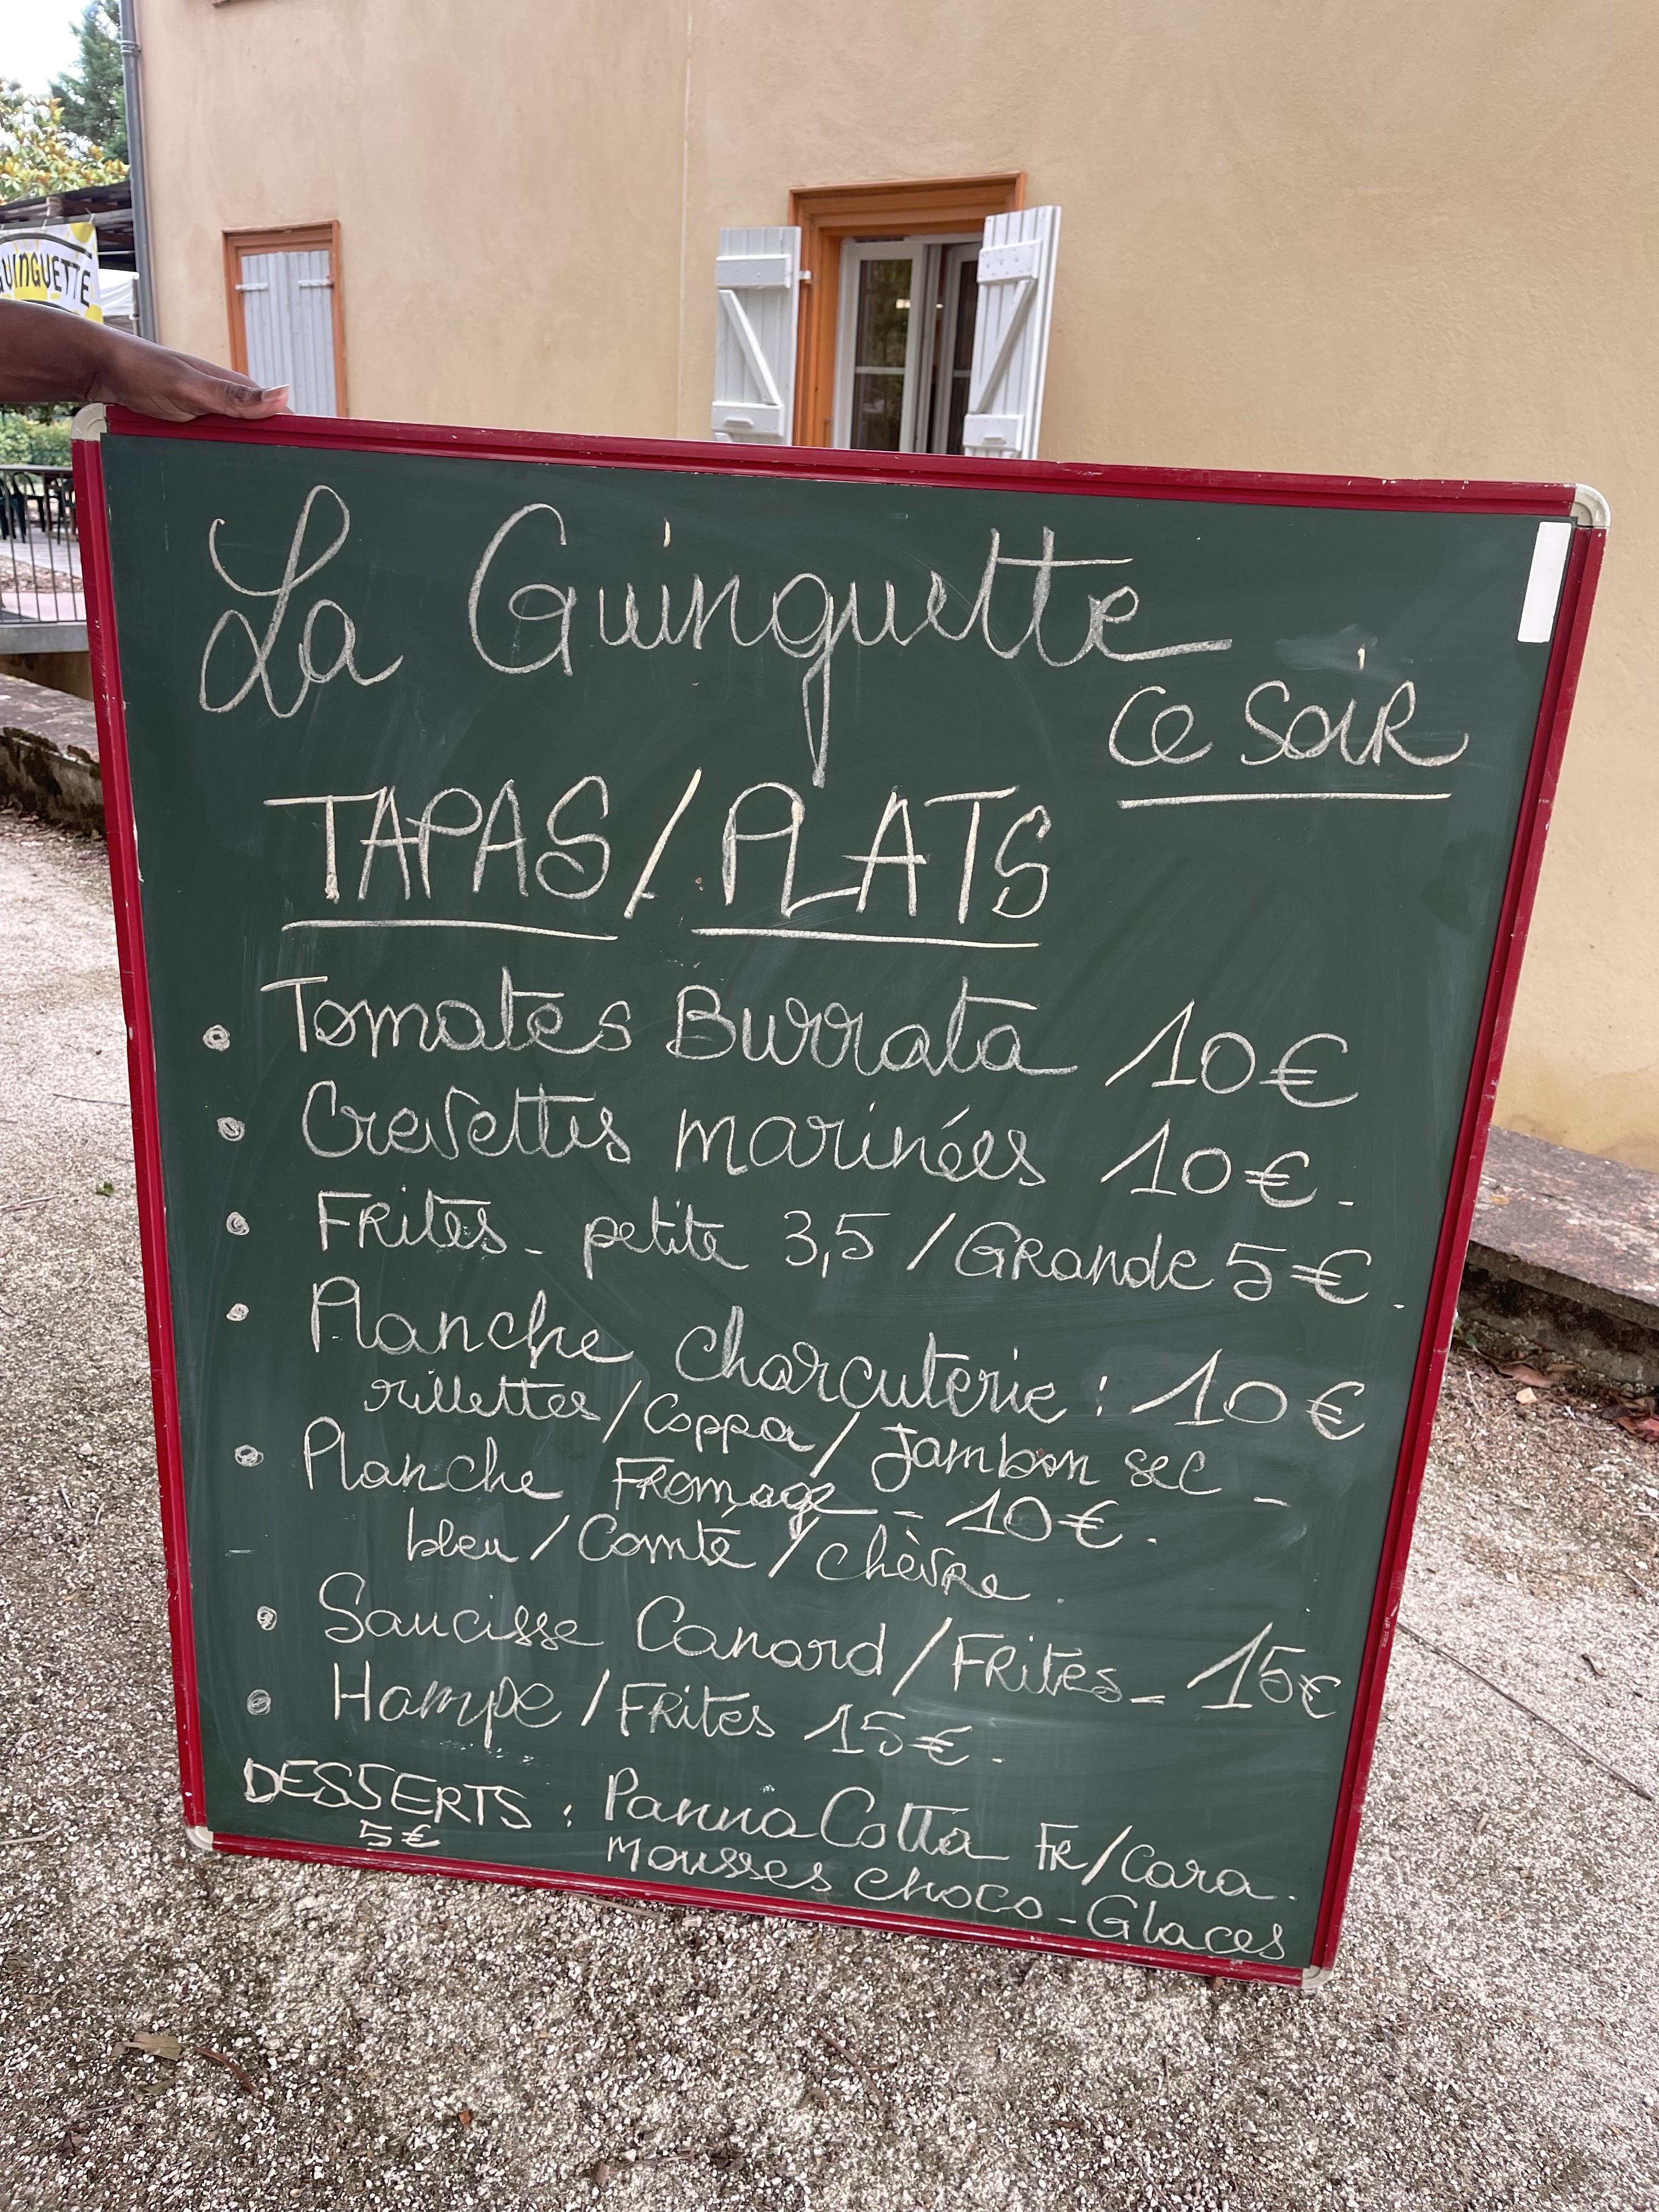 GUINGUETTE
La Guinguette
ce soir
TAPAS / PLATS
• Tomates Burrata 10€
• Crevettes marinées 10€.
• Frites - petite 3,5 / Grande 5€.
• Planche charcuterie : 10€
rillettes / Coppa / Jambon sec -
• Planche Fromage - 10€.
bleu / Comté / chèvre.
• Saucisse Canard / Frites - 15€
• Hampe / Frites 15€.
DESSERTS : Panna Cotta FR / Cara.
5€
Mousses choco - Glaces